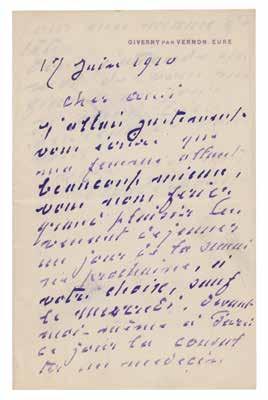 GIVERNY PAR VERNON. EURE
17 Juin 1910
Cher ami
j'allais justement
vous écrire que
ma femme allant
beaucoup mieux,
vous nous feriez
grand plaisir en
venant déjeuner
un jour de la semai
ne prochaine, à
votre choix, sauf
le mercredi, devant
moi-même à Paris
ce jour là consul
ter un médecin